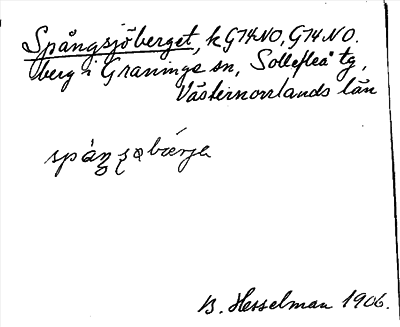 Spångsjöberget, k G74NO, G74NO.
berg i Graninge sn, Sollefteå tg,
Västernorrlands län
B. Hesselman 1906.